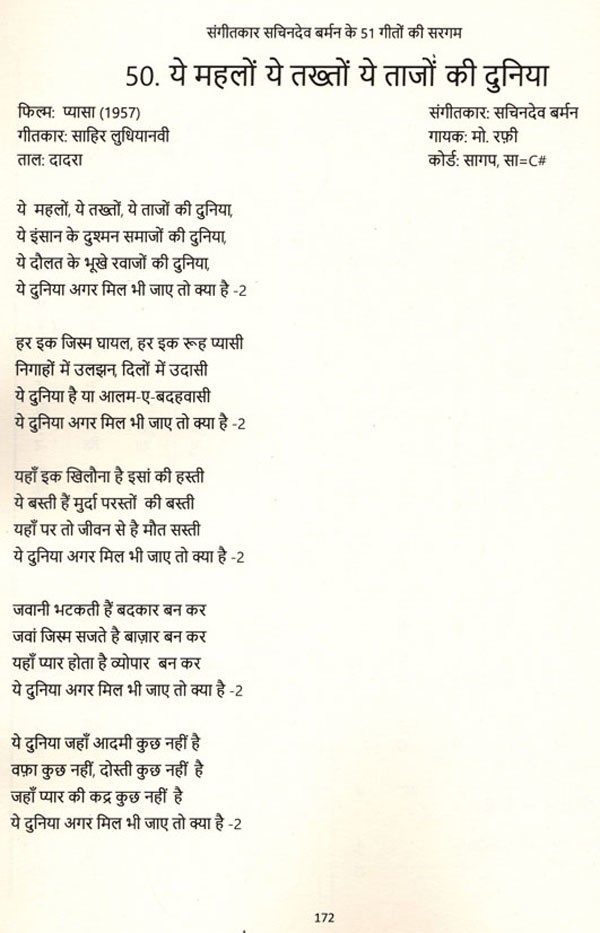 संगीतकार सचिनदेव बर्मन के 51 गीतों की सरगम
50. ये महलों ये तख्तों ये ताजों की दुनिया
फिल्म: प्यासा (1957)
संगीतकार: सचिनदेव बर्मन
गीतकार: साहिर लुधियानवी
गायक: मो. रफ़ी
ताल: दादरा
कोर्ड: सागप, सा=C#
ये महलों, ये तख्तों, ये ताजों की दुनिया,
ये इंसान के दुश्मन समाजों की दुनिया,
ये दौलत के भूखे रवाजों की दुनिया,
ये दुनिया अगर मिल भी जाए तो क्या है -2
हर इक जिस्म घायल, हर इक रूह प्यासी
निगाहों में उलझन, दिलों में उदासी
ये दुनिया है या आलम-ए-बदहवासी
ये दुनिया अगर मिल भी जाए तो क्या है -2
यहाँ इक खिलौना है इसां की हस्ती
ये बस्ती हैं मुर्दा परस्तों की बस्ती
यहाँ पर तो जीवन से है मौत सस्ती
ये दुनिया अगर मिल भी जाए तो क्या है -2
जवानी भटकती हैं बदकार बन कर
जवां जिस्म सजते है बाज़ार बन कर
यहाँ प्यार होता है व्योपार बन कर
ये दुनिया अगर मिल भी जाए तो क्या है -2
ये दुनिया जहाँ आदमी कुछ नहीं है
वफ़ा कुछ नहीं, दोस्ती कुछ नहीं है
जहाँ प्यार की कद्र कुछ नहीं है
ये दुनिया अगर मिल भी जाए तो क्या है -2
172